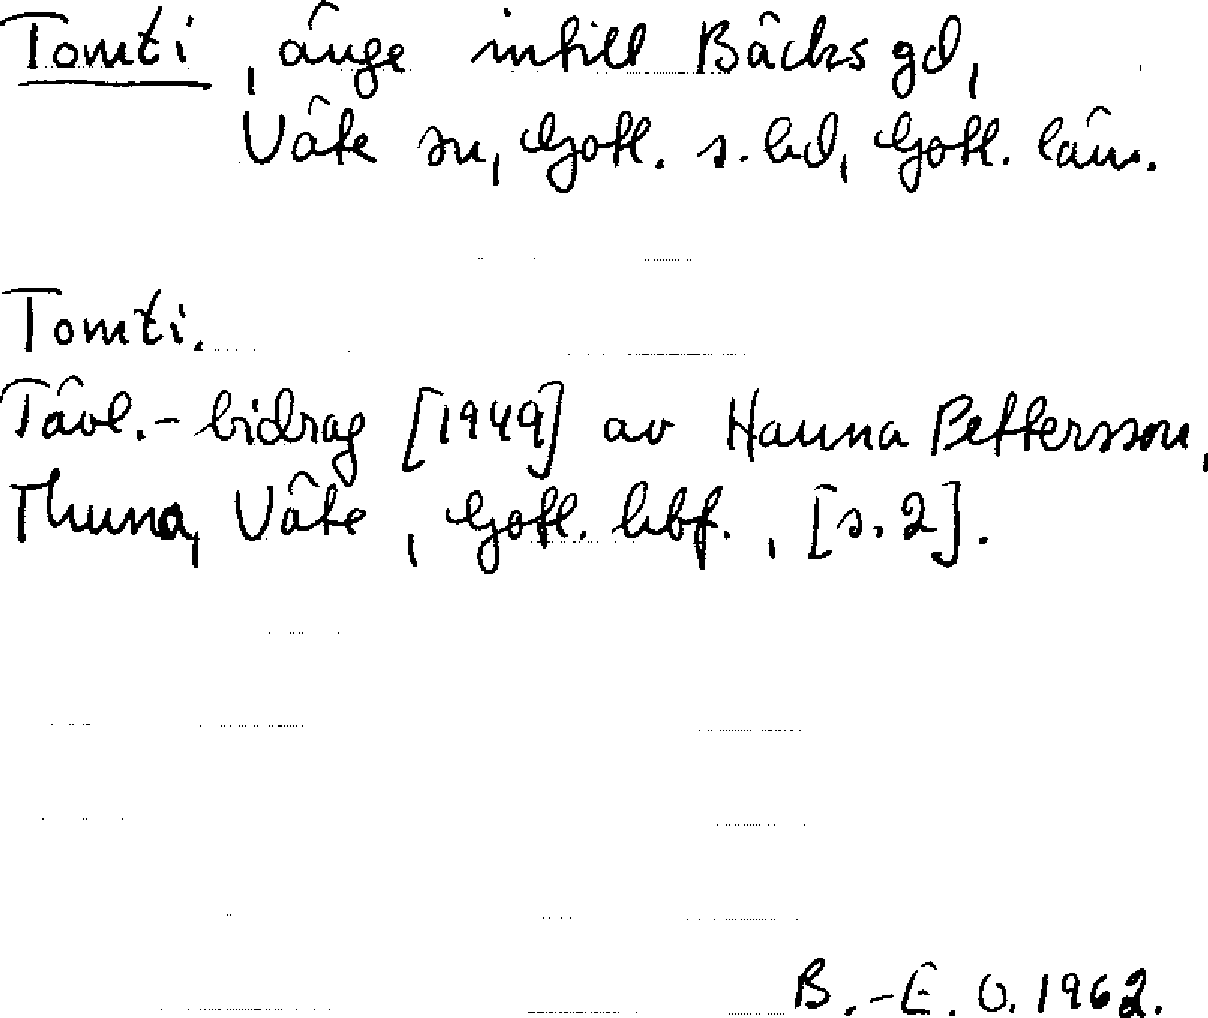 Tomti, änge intill Bäcks gd,
Väte sn, Gotl. s. hd, Gotl. län.
Tomti.
Tävl.-bidrag [1949] av Hanna Pettersson,
Thuna, Väte, Gotl. hbf., [s. 2].
B.-E. O. 1962.